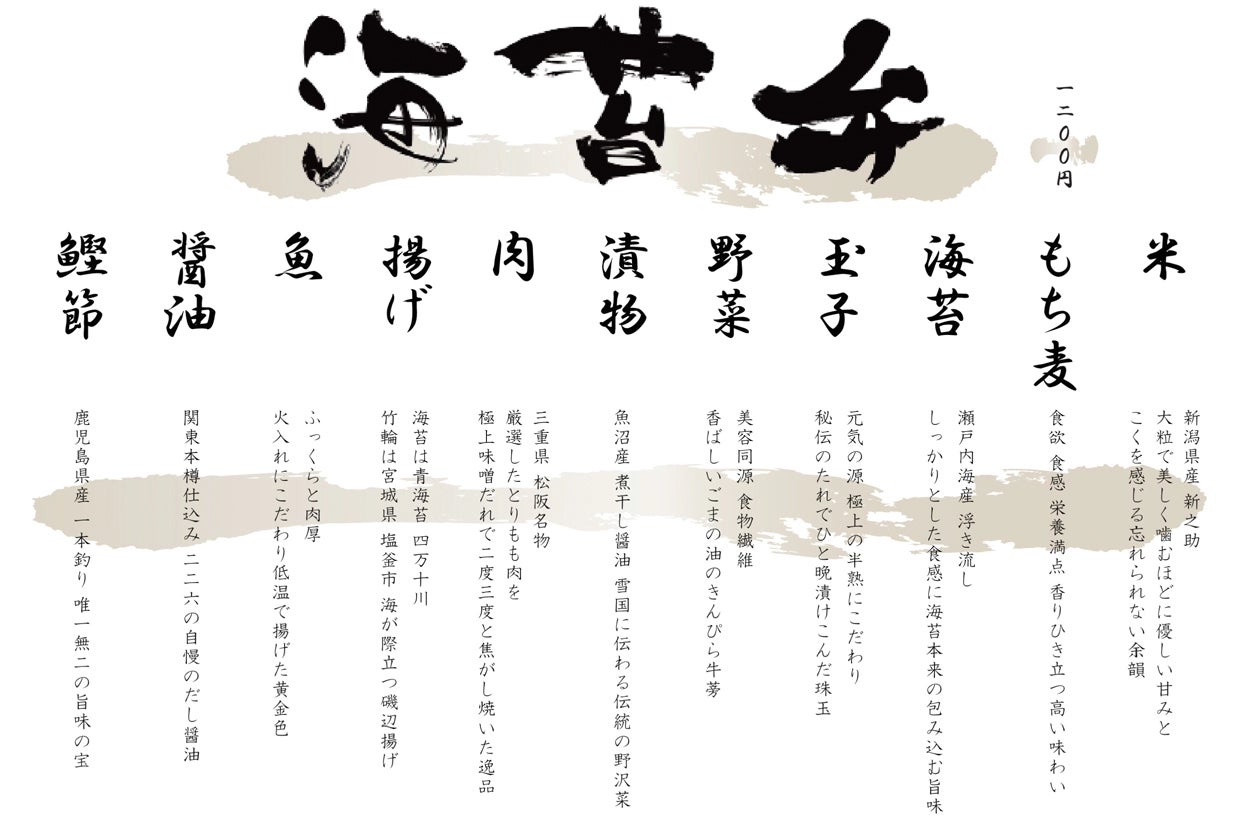 海苔弁
一二〇〇円
米
新潟県産 新之助
大粒で美しく噛むほどに優しい甘みと
こくを感じる忘れられない余韻
もち麦
食欲 食感 栄養満点 香りひき立つ高い味わい
海苔
瀬戸内海産 浮き流し
しっかりとした食感に海苔本来の包み込む旨味
玉子
元気の源 極上の半熟にこだわり
秘伝のたれでひと晩漬けこんだ珠玉
野菜
美容同源 食物繊維
香ばしいごまの油のきんぴら牛蒡
漬物
魚沼産 煮干し醤油 雪国に伝わる伝統の野沢菜
肉
三重県 松阪名物
厳選したとりもも肉を
極上味噌だれで二度三度と焦がし焼いた逸品
揚げ
海苔は青海苔 四万十川
竹輪は宮城県 塩釜市 海が際立つ磯辺揚げ
魚
ふっくらと肉厚
火入れにこだわり低温で揚げた黄金色
醤油
関東本樽仕込み 二二六の自慢のだし醤油
鰹節
鹿児島県産 一本釣り 唯一無二の旨味の宝